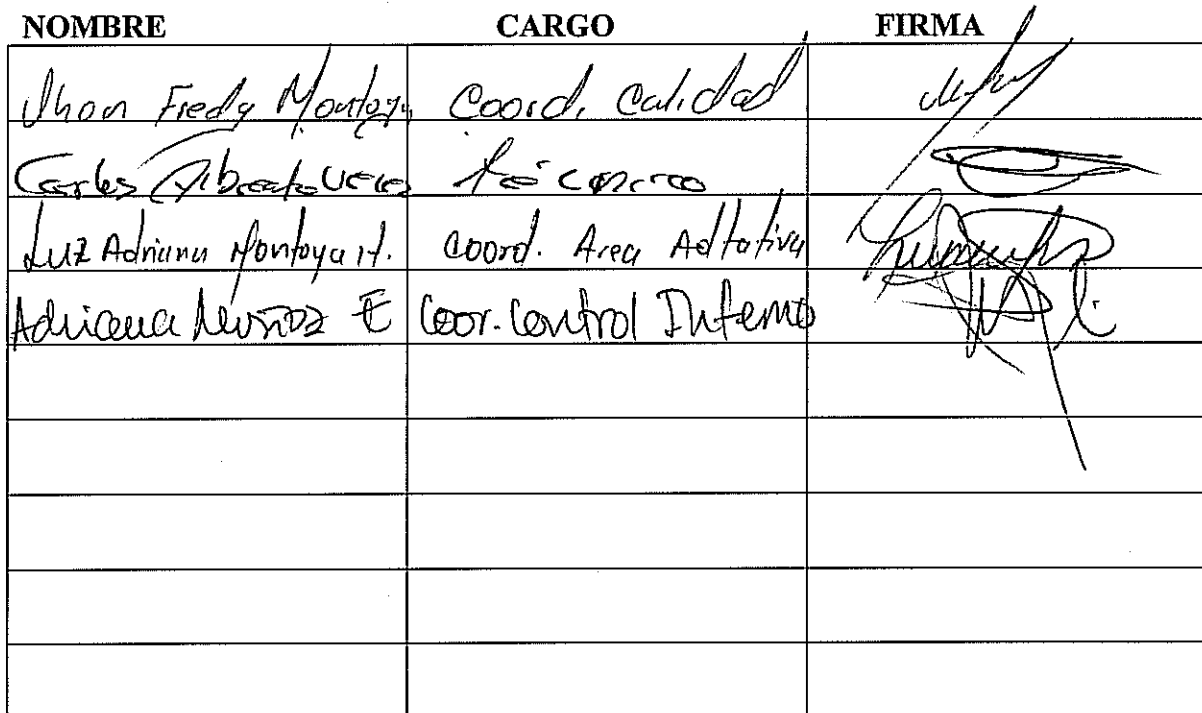 NOMBRE CARGO FIRMA
Jhon Fredy Montoya Coord. Calidad
Carlos Alberto Velez Técnico
Luz Adriana Montoya H. Coord. Area Adtativa
Adriana Muñoz E Coor. Control Interno